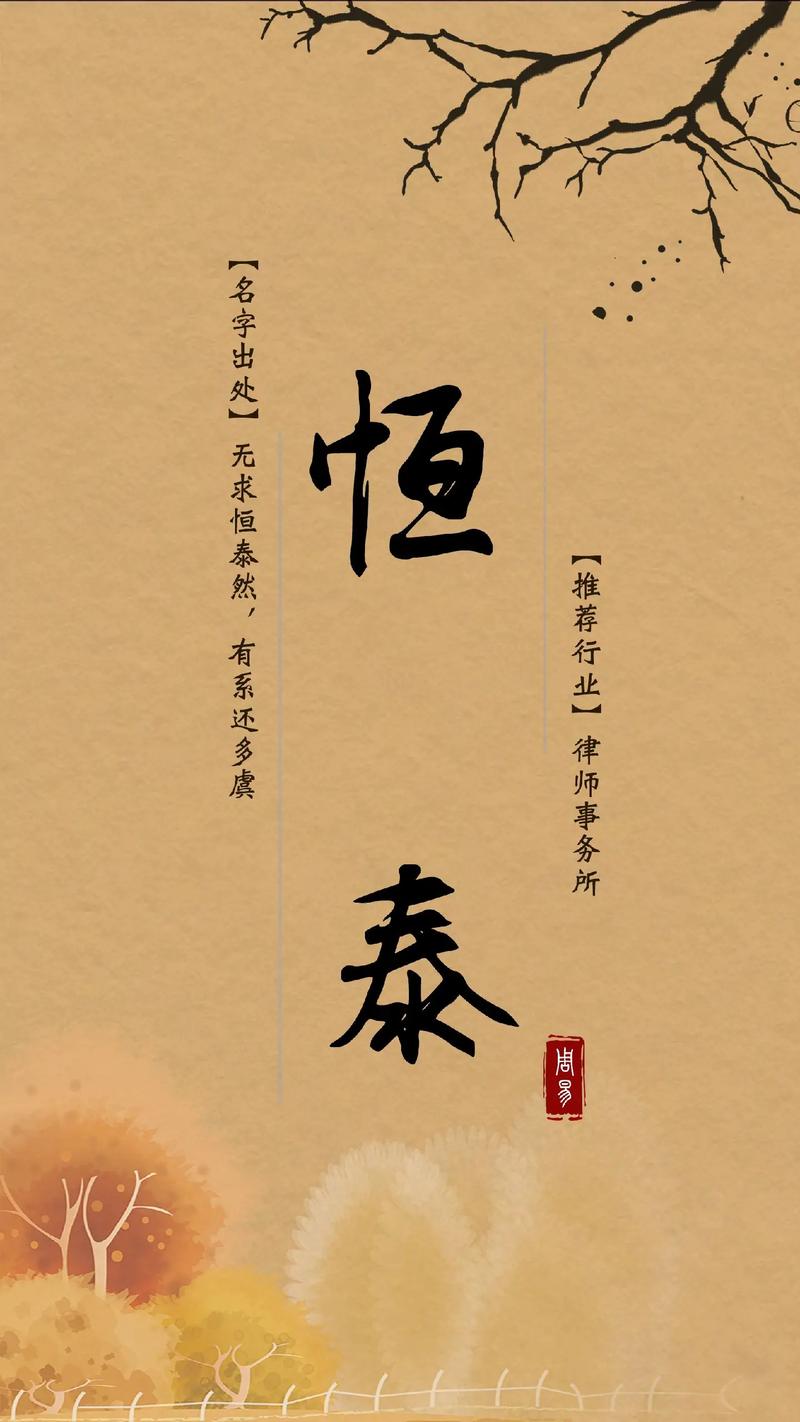 【推荐行业】律师事务所
恒泰
【名字出处】无求恒泰然，有系还多虞
周易